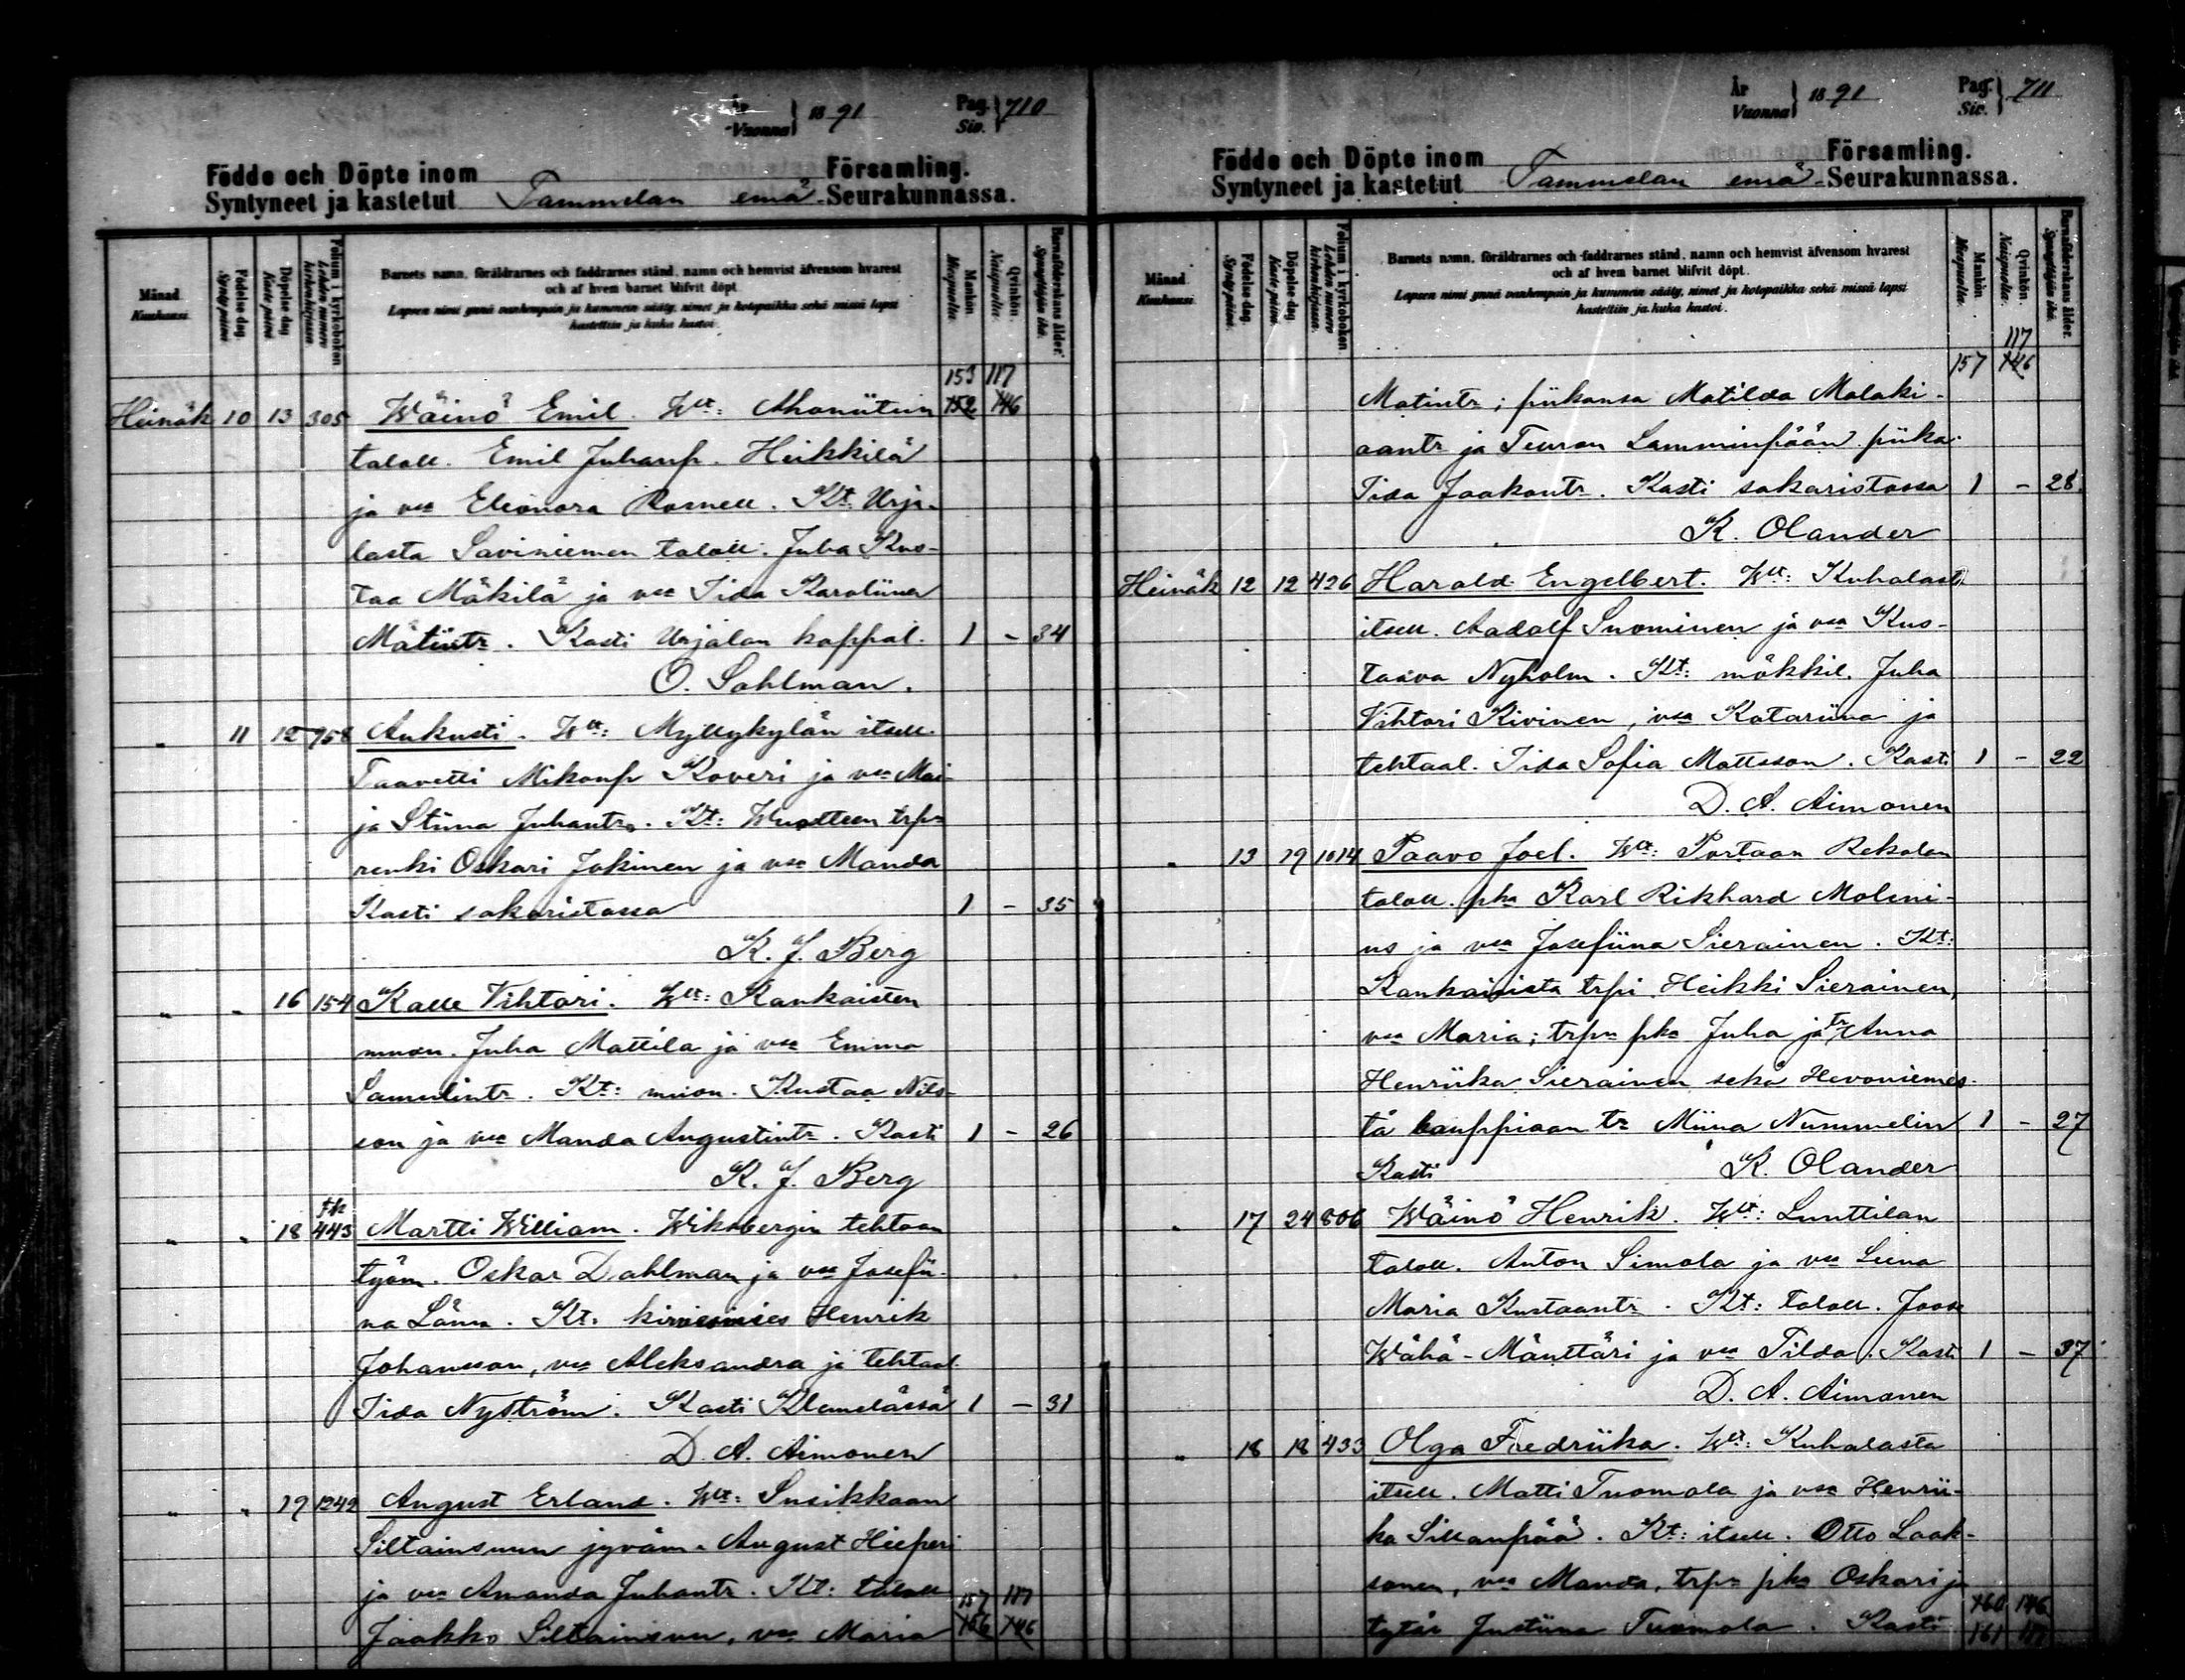 År
Vuonna } 1891
Pag.
Siv. } 710
Födde och Döpte inom Församling.
Syntyneet ja kastetut Tammelan emä-Seurakunnassa.
Månad.
Kuukausi.
Födelse dag.
Syntypäivä.
Döpelse dag.
Kaste päivä.
Folium i kyrkoboken
Lehden numero kirkonkirjassa.
Barnets namn, föräldrarnes och faddrarnes stånd, namn och hemvist äfvensom hvarest
och af hvem barnet blifvit döpt.
Lapsen nimi ynnä vanhempain ja kummein sääty, nimet ja kotopaikka sekä missä lapsi
kastettiin ja kuka kastoi.
Mankön.
Miespuolta.
Qvinkön.
Naispuolta.
Barnaföderskans ålder.
Synnyttäjän ikä.
153 117
Heinäk 10 13 305 Wäinö Emil. Wt: Ahoniitun 152 146
taloll. Emil Juhanp. Heikkilä
ja vsa Eleonora Rosnell. Kt: Urja-
lasta Saviniemen taloll. Juha Kus-
taa Mäkilä ja vsa Iida Karoliina
Matintr. Kasti Urjalan kappal. 1 - 34
O. Sahlman.
" 11 12 758 Aukusti. Wt: Myllykylän itsell.
Taavetti Mikonp Koveri ja vsa Mai-
ja Stiina Juhantr. Kt: trpn
renki Oskari Jokinen ja vsa Manda
Kasti sakaristossa 1 - 35
K. J. Berg
" " 16 154 Kalle Vihtori. Wt: Kankaisten
muon. Juha Mattila ja vsa Emma
Samulintr. Kt: muon. Kustaa Nils-
son ja vsa Manda Augustintr. Kasti 1 - 26
K. J. Berg
" " 18 443 Martti William. Wiksbergin tehtaan
työm. Oskar Dahlman ja vsa Josefii-
na Läm. Kt: kirvesmies Henrik
Johansson, vsa Aleksandra ja tehtaal.
Iida Nyström. Kasti Klemelässä 1 - 31
D. A. Aimonen
" " 19 1242 August Erland. Wt: Susikkaan
Siltainsuun jyväm. August Hieperi
ja vsa Amanda Juhantr. Kt: taloll 157 117
Jaakko Siltainsuu, vsa Maria 156 146
År
Vuonna } 1891
Pag.
Siv. } 711
Födde och Döpte inom Församling.
Syntyneet ja kastetut Tammelan emä-Seurakunnassa.
Månad.
Kuukausi.
Födelse dag.
Syntypäivä.
Döpelse dag.
Kaste päivä.
Folium i kyrkoboken
Lehden numero kirkonkirjassa.
Barnets namn, föräldrarnes och faddrarnes stånd, namn och hemvist äfvensom hvarest
och af hvem barnet blifvit döpt.
Lapsen nimi ynnä vanhempain ja kummein sääty, nimet ja kotopaikka sekä missä lapsi
kastettiin ja kuka kastoi.
Mankön.
Miespuolta.
Qvinkön.
Naispuolta.
Barnaföderskans ålder.
Synnyttäjän ikä.
117
157 146
Matintr; piikansa Matilda Malaki-
aantr ja Teuron Lamminpään piika
Iida Jaakontr. Kasti sakaristossa 1 - 28
K. Olander
Heinäk 12 12 426 Harald Engelbert. Wt: Kuhalast.
itsell. Aadolf Suominen ja vsa Kus-
taava Nyholm. Kt: mökkil. Juha
Vihtori Kivinen, vsa Katariina ja
tehtaal. Iida Sofia Mattsson. Kasti 1 - 22
D. A. Aimonen
" 13 19 1014 Paavo Joel. Wt: Portaan Rekolan
taloll. pka Karl Rikhard Moleni-
us ja vsa Josefiina Sierainen. Kt:
Kankaisista trpi. Heikki Sierainen,
vsa Maria; trpn pka Juha ja tr Anna
Henriika Sierainen sekä Hevoniemes-
tä kauppiaan tr Miina Nummelin 1 - 27
Kasti K. Olander
" 17 24 806 Wäinö Henrik. Wt: Lunttilan
taloll. Anton Simola ja vsa Liena
Maria Kustaantr. Kt: taloll. Joose
Wähä-Mänttäri ja vsa Tilda. Kasti 1 - 37
D. A. Aimonen
" 18 18 433 Olga Fredriika. Wt: Kuhalasta
itsell. Matti Tuomola ja vsa Henrii-
ka Sillanpää. Kt: itsell. Otto Laak-
sonen, vsa Manda, trpn pka Oskari ja 160 146
tytär Justiina Tuomola. Kasti 161 117